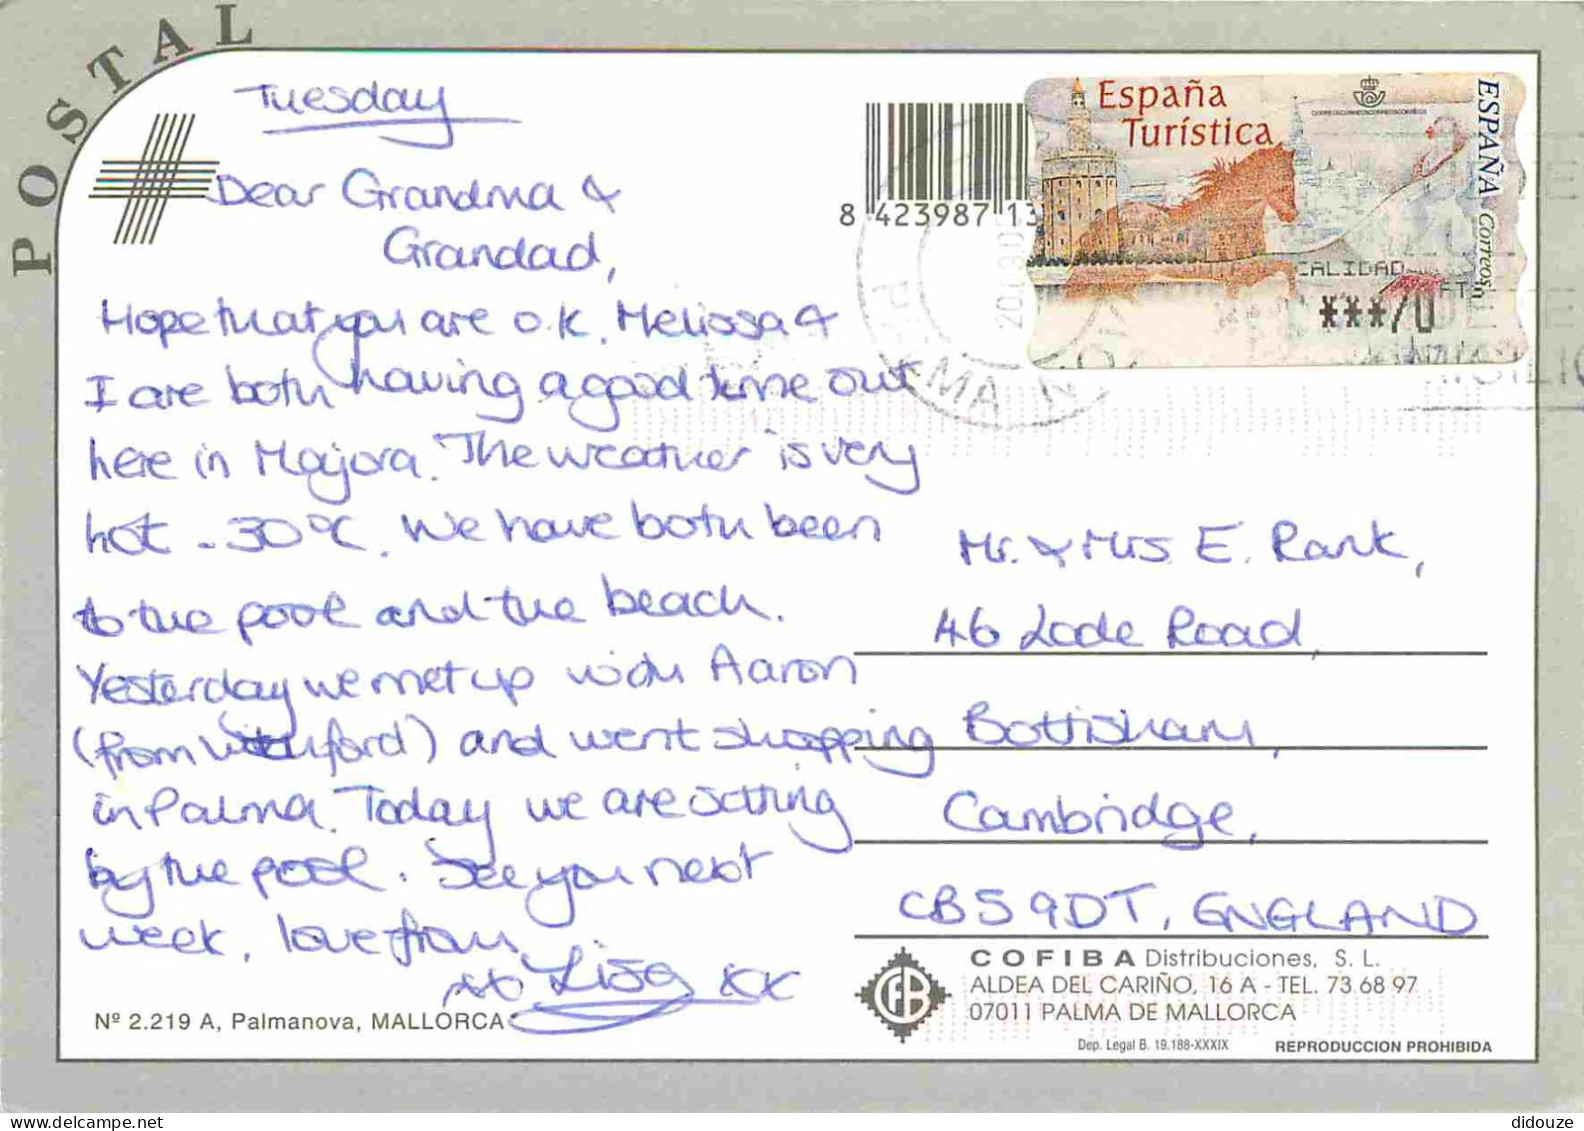 POSTAL
Tuesday
Dear Grandma &
Grandad,
Hope that you are o.k. Melissa &
I are both having a good time out
here in Majora. The weather is very
hot - 30°C. We have both been
to the pool and the beach.
Yesterday we met up with Aaron
(from) and went shopping
in Palma. Today we are sitting
by the pool. See you next
week, love from
Lisa xx
Nº 2.219 A, Palmanova, MALLORCA
8 423987 13
España
Turística
ESPAÑA
Correos
CALIDAD
***70
PALMA NOVA
Mr. & Mrs E. Rank,
46 Lode Road,
Bottisham,
Cambridge,
CB5 9DT, ENGLAND
CFB
COFIBA Distribuciones, S. L.
ALDEA DEL CARIÑO, 16 A - TEL. 73 68 97
07011 PALMA DE MALLORCA
Dep. Legal B. 19.188-XXXIX
REPRODUCCION PROHIBIDA
didouze